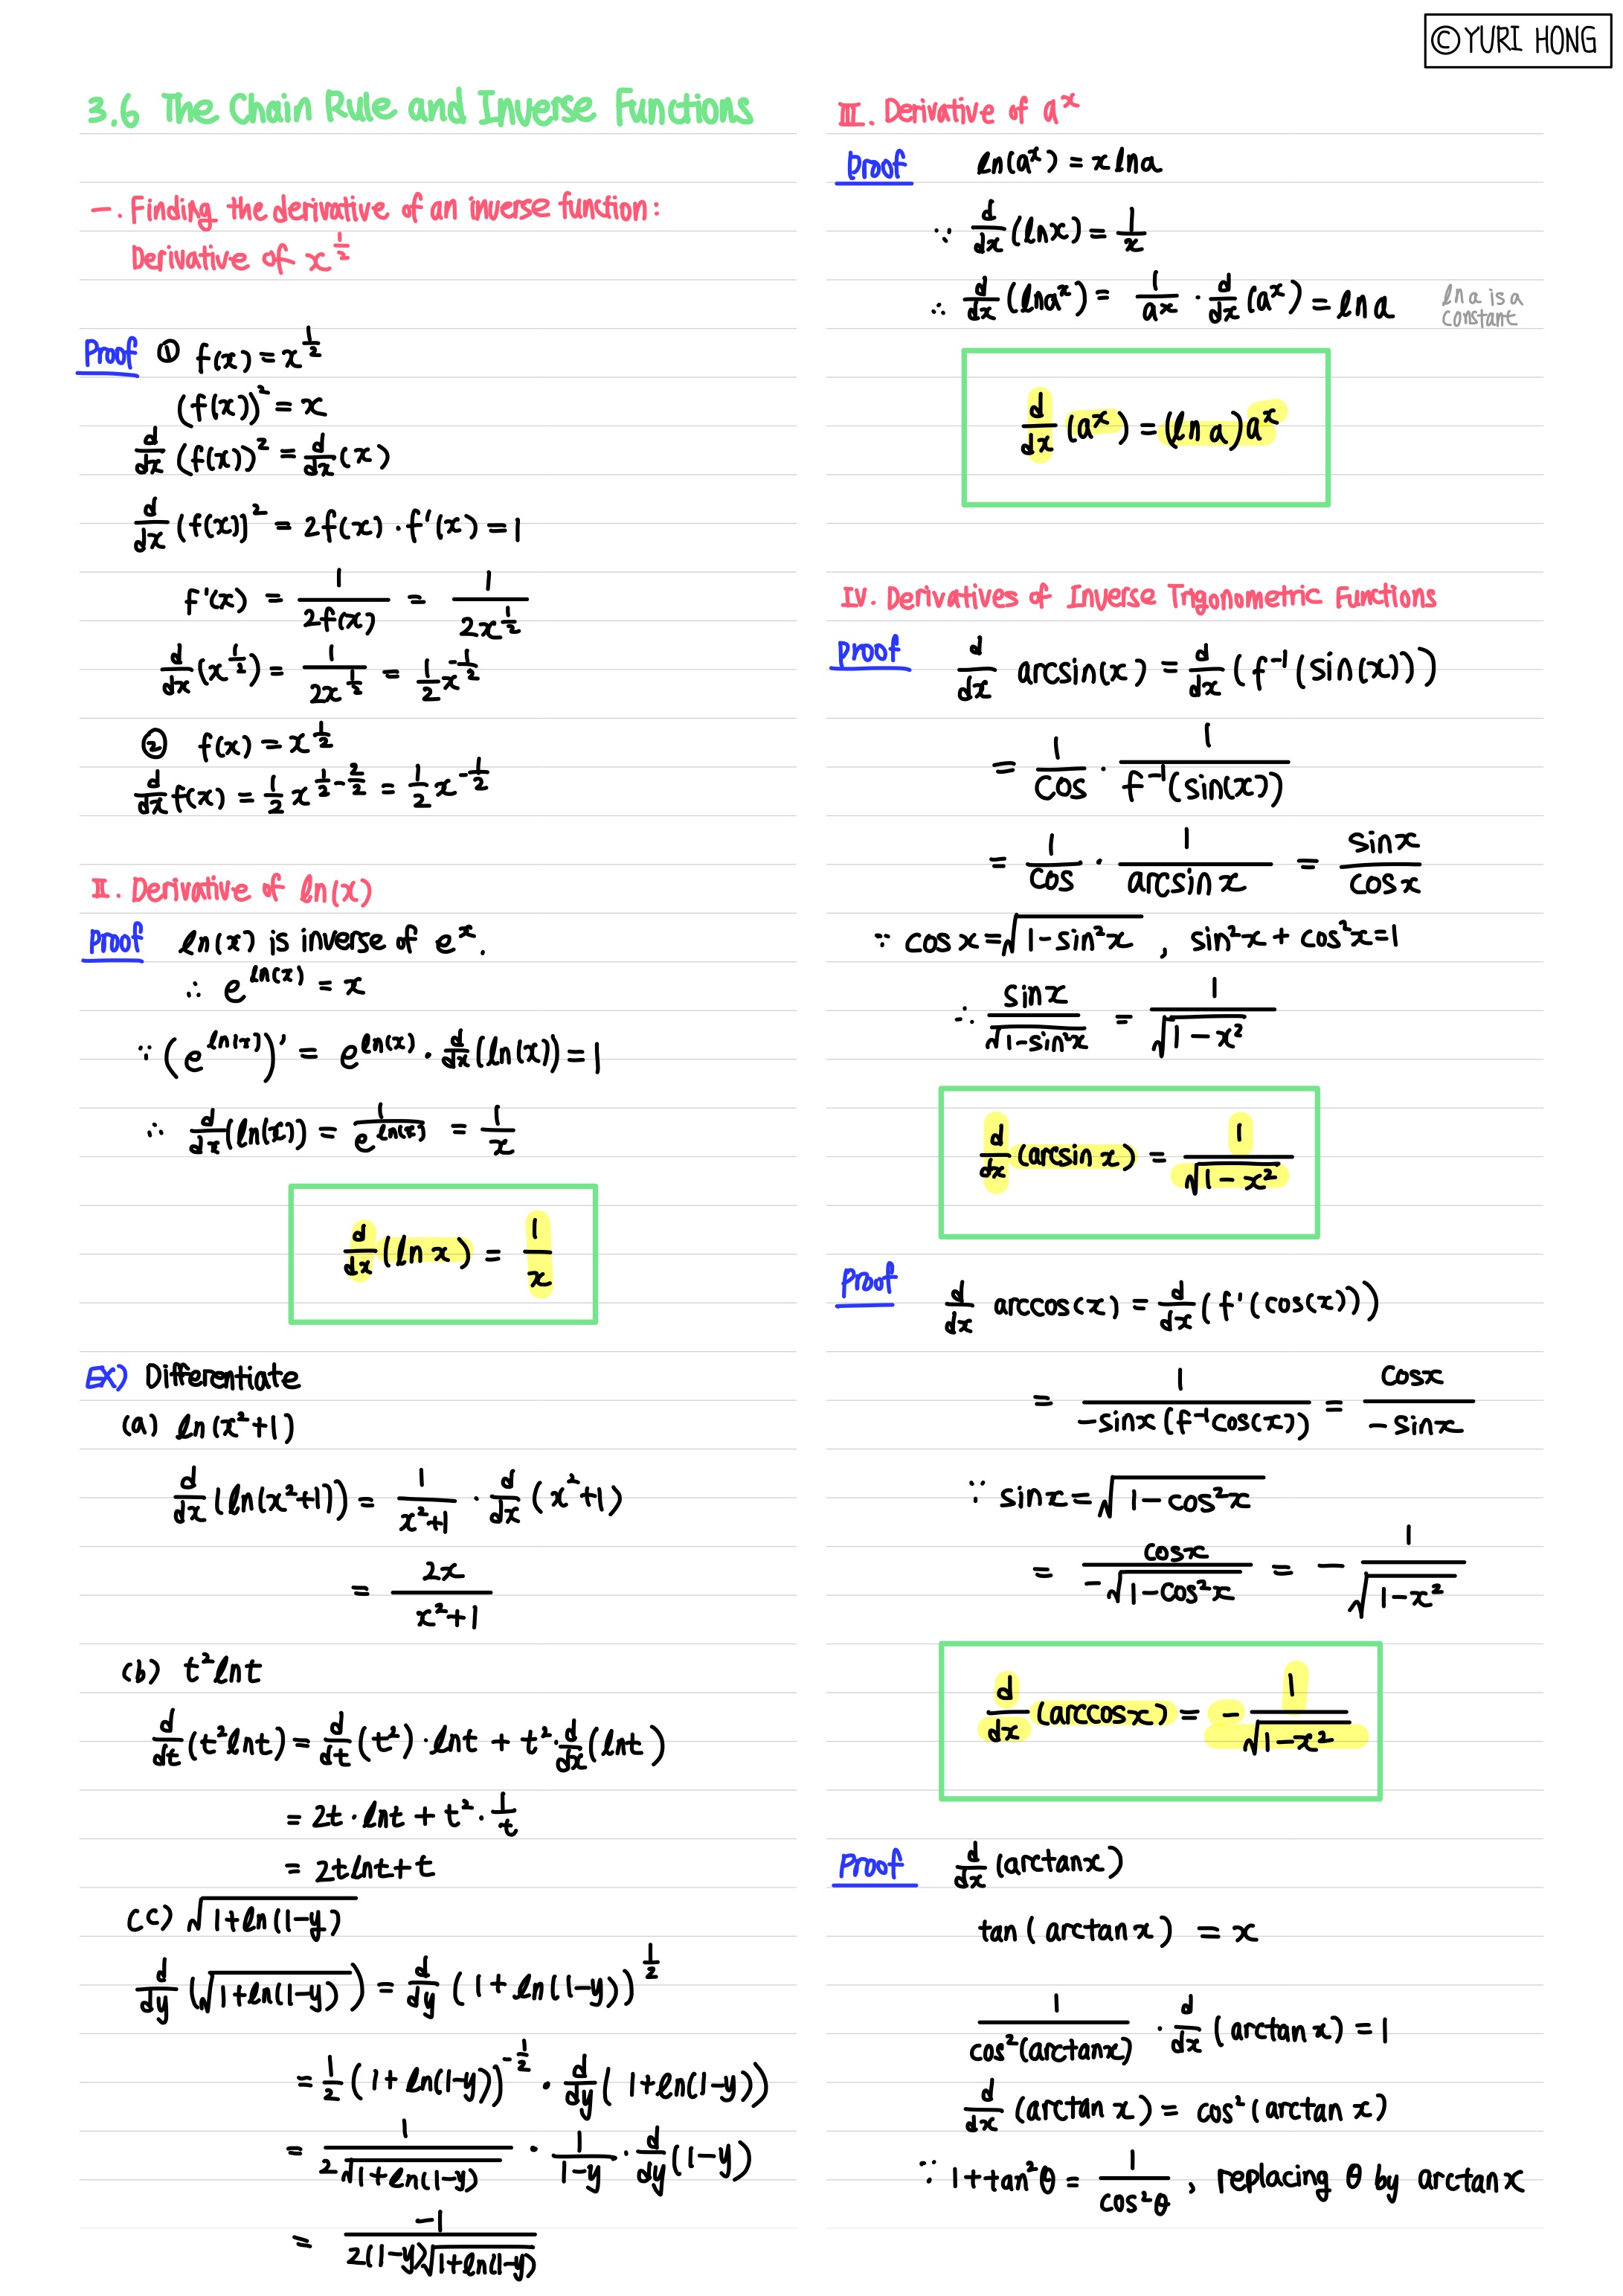 ©YURI HONG
3.6 The Chain Rule and Inverse Functions
一. Finding the derivative of an inverse function:
Derivative of x^(1/2)
Proof ① f(x) = x^(1/2)
(f(x))² = x
d/dx (f(x))² = d/dx (x)
d/dx (f(x))² = 2f(x) · f'(x) = 1
f'(x) = 1/(2f(x)) = 1/(2x^(1/2))
d/dx (x^(1/2)) = 1/(2x^(1/2)) = 1/2 x^(-1/2)
② f(x) = x^(1/2)
d/dx f(x) = 1/2 x^(1/2 - 2/2) = 1/2 x^(-1/2)
II. Derivative of ln(x)
Proof ln(x) is inverse of e^x.
∴ e^(ln(x)) = x
∵ (e^(ln(x)))' = e^(ln(x)) · d/dx (ln(x)) = 1
∴ d/dx (ln(x)) = 1/e^(ln(x)) = 1/x
d/dx (ln x) = 1/x
EX) Differentiate
(a) ln(x²+1)
d/dx (ln(x²+1)) = 1/(x²+1) · d/dx (x²+1)
= 2x/(x²+1)
(b) t² lnt
d/dt (t² lnt) = d/dt (t²) · lnt + t² · d/dx (lnt)
= 2t · lnt + t² · 1/t
= 2t lnt + t
(c) √(1+ln(1-y))
d/dy (√(1+ln(1-y))) = d/dy (1+ln(1-y))^(1/2)
= 1/2 (1+ln(1-y))^(-1/2) · d/dy (1+ln(1-y))
= 1/(2√(1+ln(1-y))) · 1/(1-y) · d/dy (1-y)
= -1/(2(1-y)√(1+ln(1-y)))
III. Derivative of a^x
Proof ln(a^x) = x lna
∵ d/dx (lnx) = 1/x
∴ d/dx (lna^x) = 1/a^x · d/dx (a^x) = ln a
ln a is a
constant
d/dx (a^x) = (ln a)a^x
IV. Derivatives of Inverse Trigonometric Functions
Proof d/dx arcsin(x) = d/dx (f⁻¹(sin(x)))
= 1/cos · 1/(f⁻¹(sin(x)))
= 1/cos · 1/(arcsin x) = sinx/cosx
∵ cos x = √(1-sin²x) , sin²x + cos²x = 1
∴ sinx/√(1-sin²x) = 1/√(1-x²)
d/dx (arcsin x) = 1/√(1-x²)
Proof d/dx arccos(x) = d/dx (f'(cos(x)))
= 1/(-sinx(f⁻¹cos(x))) = cosx/(-sinx)
∵ sinx = √(1-cos²x)
= cosx/(-√(1-cos²x)) = - 1/√(1-x²)
d/dx (arccosx) = - 1/√(1-x²)
Proof d/dx (arctanx)
tan(arctanx) = x
1/(cos²(arctanx)) · d/dx (arctanx) = 1
d/dx (arctan x) = cos²(arctan x)
∵ 1+tan²θ = 1/cos²θ , replacing θ by arctanx